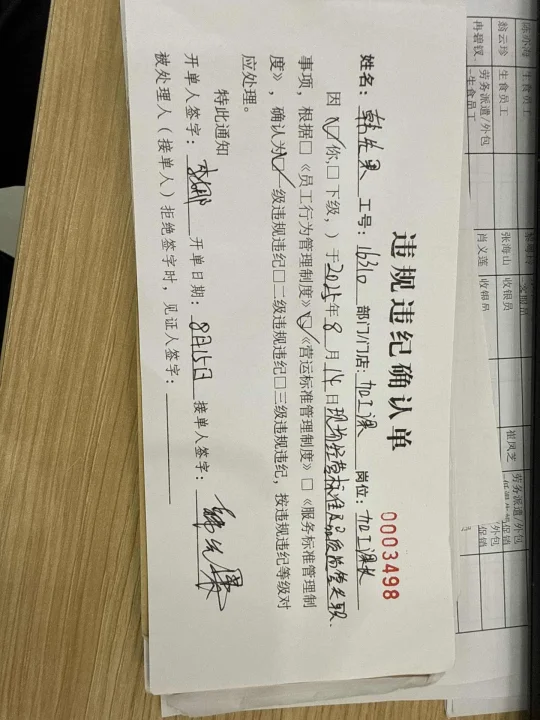 违规违纪确认单
0003498
姓名：韩先果 工号：16310 部门/门店：加工课 岗位：加工课长
因（☑你，□下级，）于2025年8月14日现场经营标准及品质管失职.
事项，根据□《员工行为管理制度》☑《营运标准管理制度》□《服务标准管理制
度》，确认为☑一级违规违纪□二级违规违纪□三级违规违纪，按违规违纪等级对
应处理。
特此通知
开单人签字： 开单日期：8月15日 接单人签字：
被处理人（接单人）拒绝签字时，见证人签字：
生食员工
翁云珍 生食员工
冉碧钗 劳务派遣/外包
生食员工
张海山 收银员
肖义莲 收银员
崔凤芝 劳务派遣/外包
促销
外包
促销